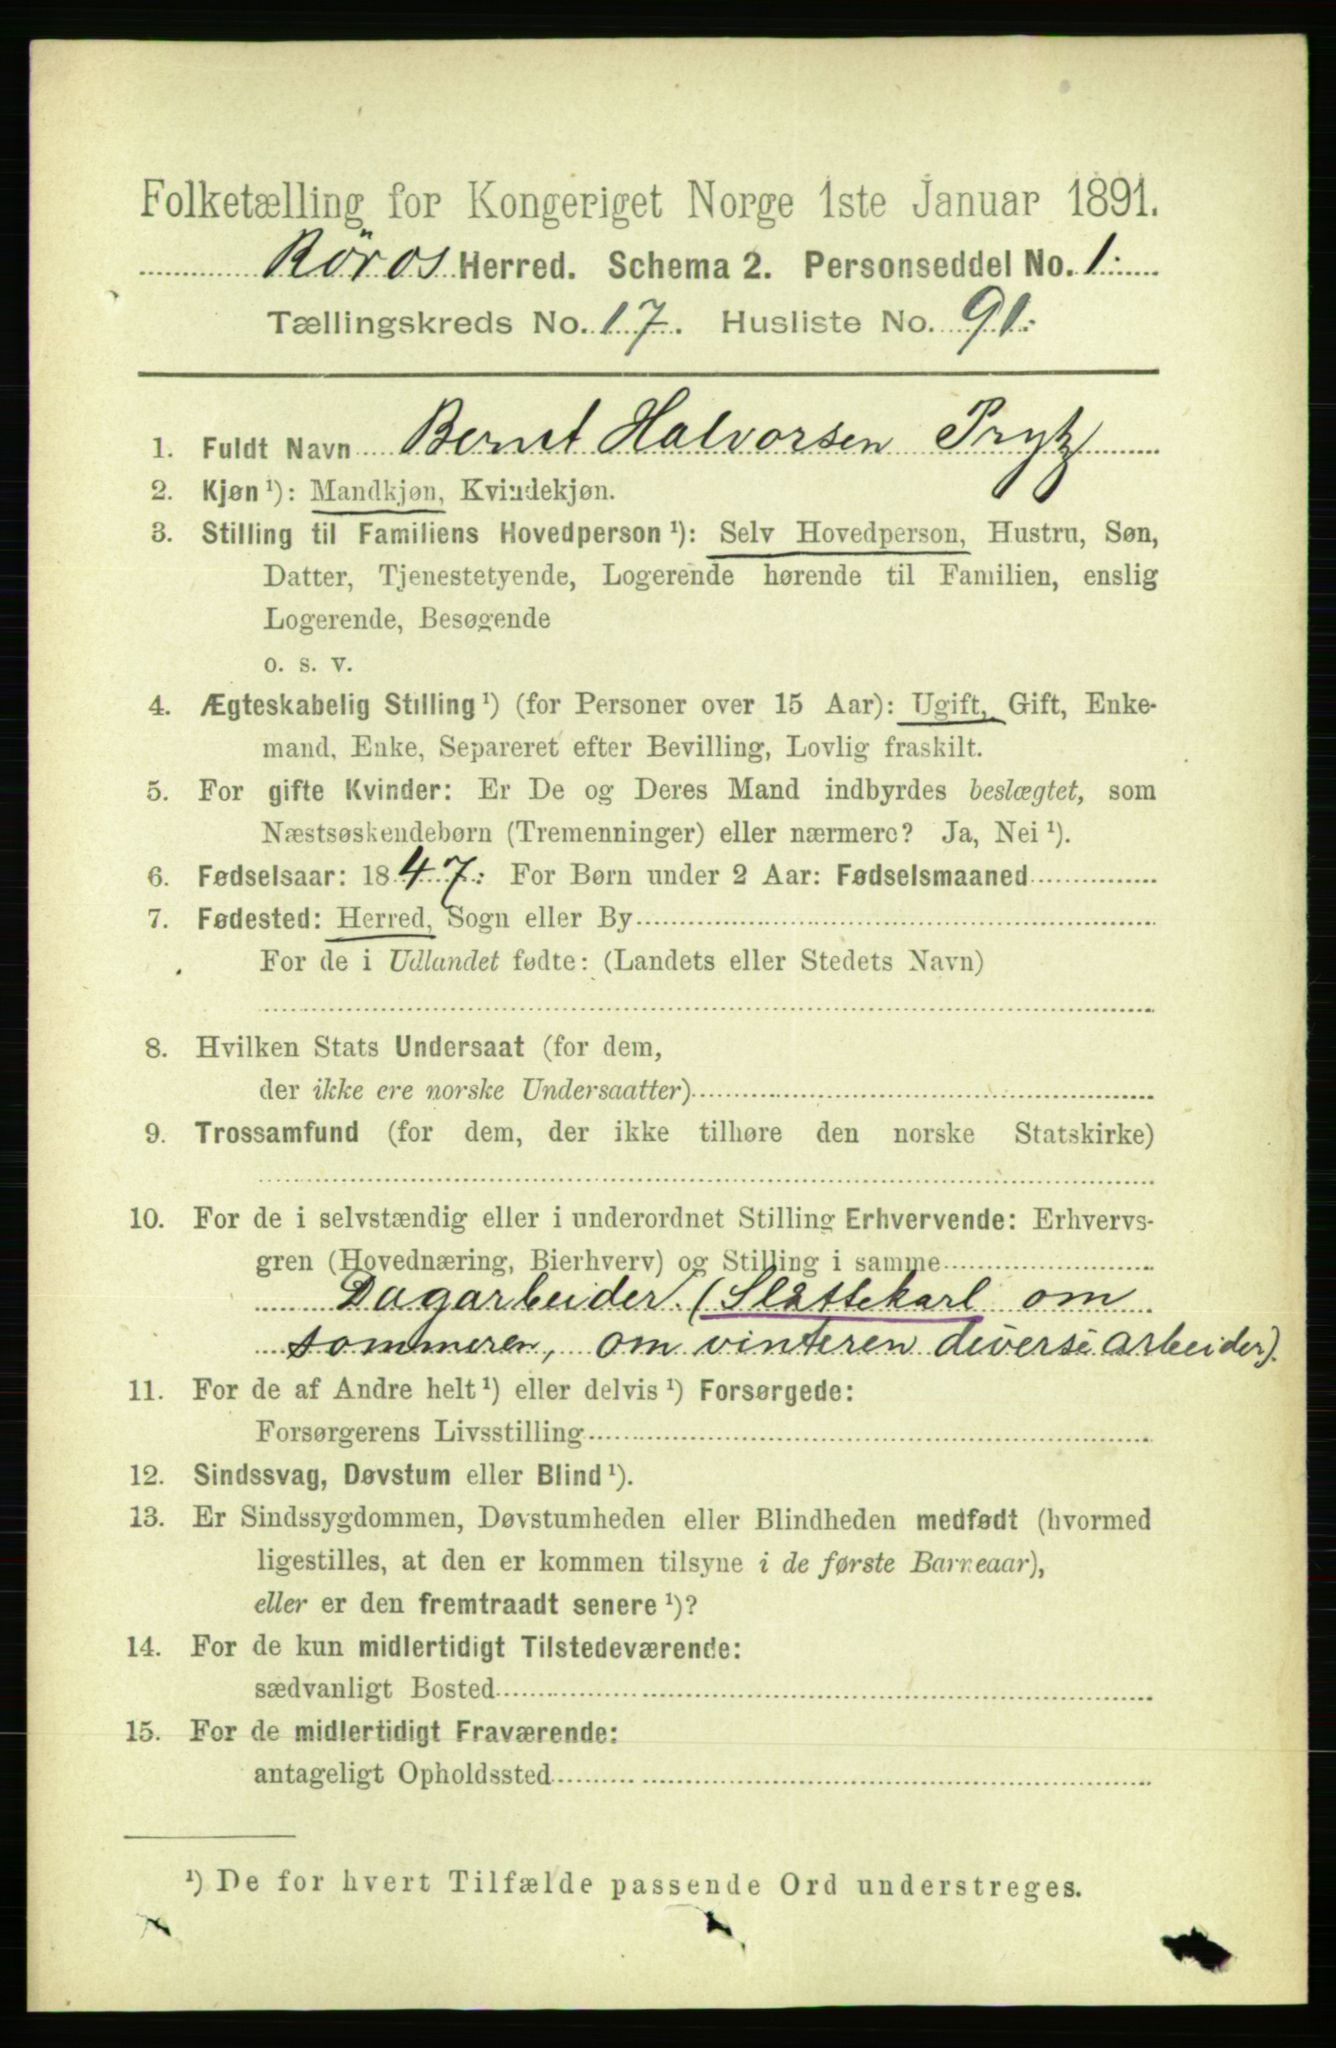 Folketælling for Kongeriget Norge 1ste Januar 1891.
Röros Herred. Schema 2. Personseddel No. 1.
Tællingskreds No. 17. Husliste No. 91.
1. Fuldt Navn Bernt Halvorsen Prytz
2. Kjøn ¹): Mandkjøn, Kvindekjøn.
3. Stilling til Familiens Hovedperson ¹): Selv Hovedperson, Hustru, Søn,
Datter, Tjenestetyende, Logerende hørende til Familien, enslig
Logerende, Besøgende
o. s. v.
4. Ægteskabelig Stilling ¹) (for Personer over 15 Aar): Ugift, Gift, Enke-
mand, Enke, Separeret efter Bevilling, Lovlig fraskilt.
5. For gifte Kvinder: Er De og Deres Mand indbyrdes beslægtet, som
Næstsøskendebørn (Tremenninger) eller nærmere? Ja, Nei ¹).
6. Fødselsaar: 1847. For Børn under 2 Aar: Fødselsmaaned
7. Fødested: Herred, Sogn eller By
For de i Udlandet fødte: (Landets eller Stedets Navn)
8. Hvilken Stats Undersaat (for dem,
der ikke ere norske Undersaatter)
9. Trossamfund (for dem, der ikke tilhøre den norske Statskirke)
10. For de i selvstændig eller i underordnet Stilling Erhvervende: Erhvervs-
gren (Hovednæring, Bierhverv) og Stilling i samme
Dagarbeider. (Slåttekarl om
sommeren, om vinteren diverse arbeider).
11. For de af Andre helt ¹) eller delvis ¹) Forsørgede:
Forsørgerens Livsstilling
12. Sindssvag, Døvstum eller Blind ¹).
13. Er Sindssygdommen, Døvstumheden eller Blindheden medfødt (hvormed
ligestilles, at den er kommen tilsyne i de første Barneaar),
eller er den fremtraadt senere ¹)?
14. For de kun midlertidigt Tilstedeværende:
sædvanligt Bosted
15. For de midlertidigt Fraværende:
antageligt Opholdssted
¹) De for hvert Tilfælde passende Ord understreges.